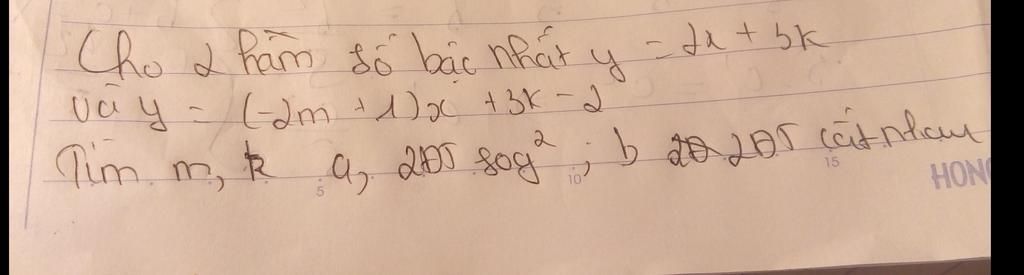 Cho 2 hàm số bậc nhất y = 2x + 3k
và y = (-2m + 1)x + 3k - 2
Tìm m, k a, 2ĐT sog²; b 2ĐT cắt nhau
5 10 15 HONG